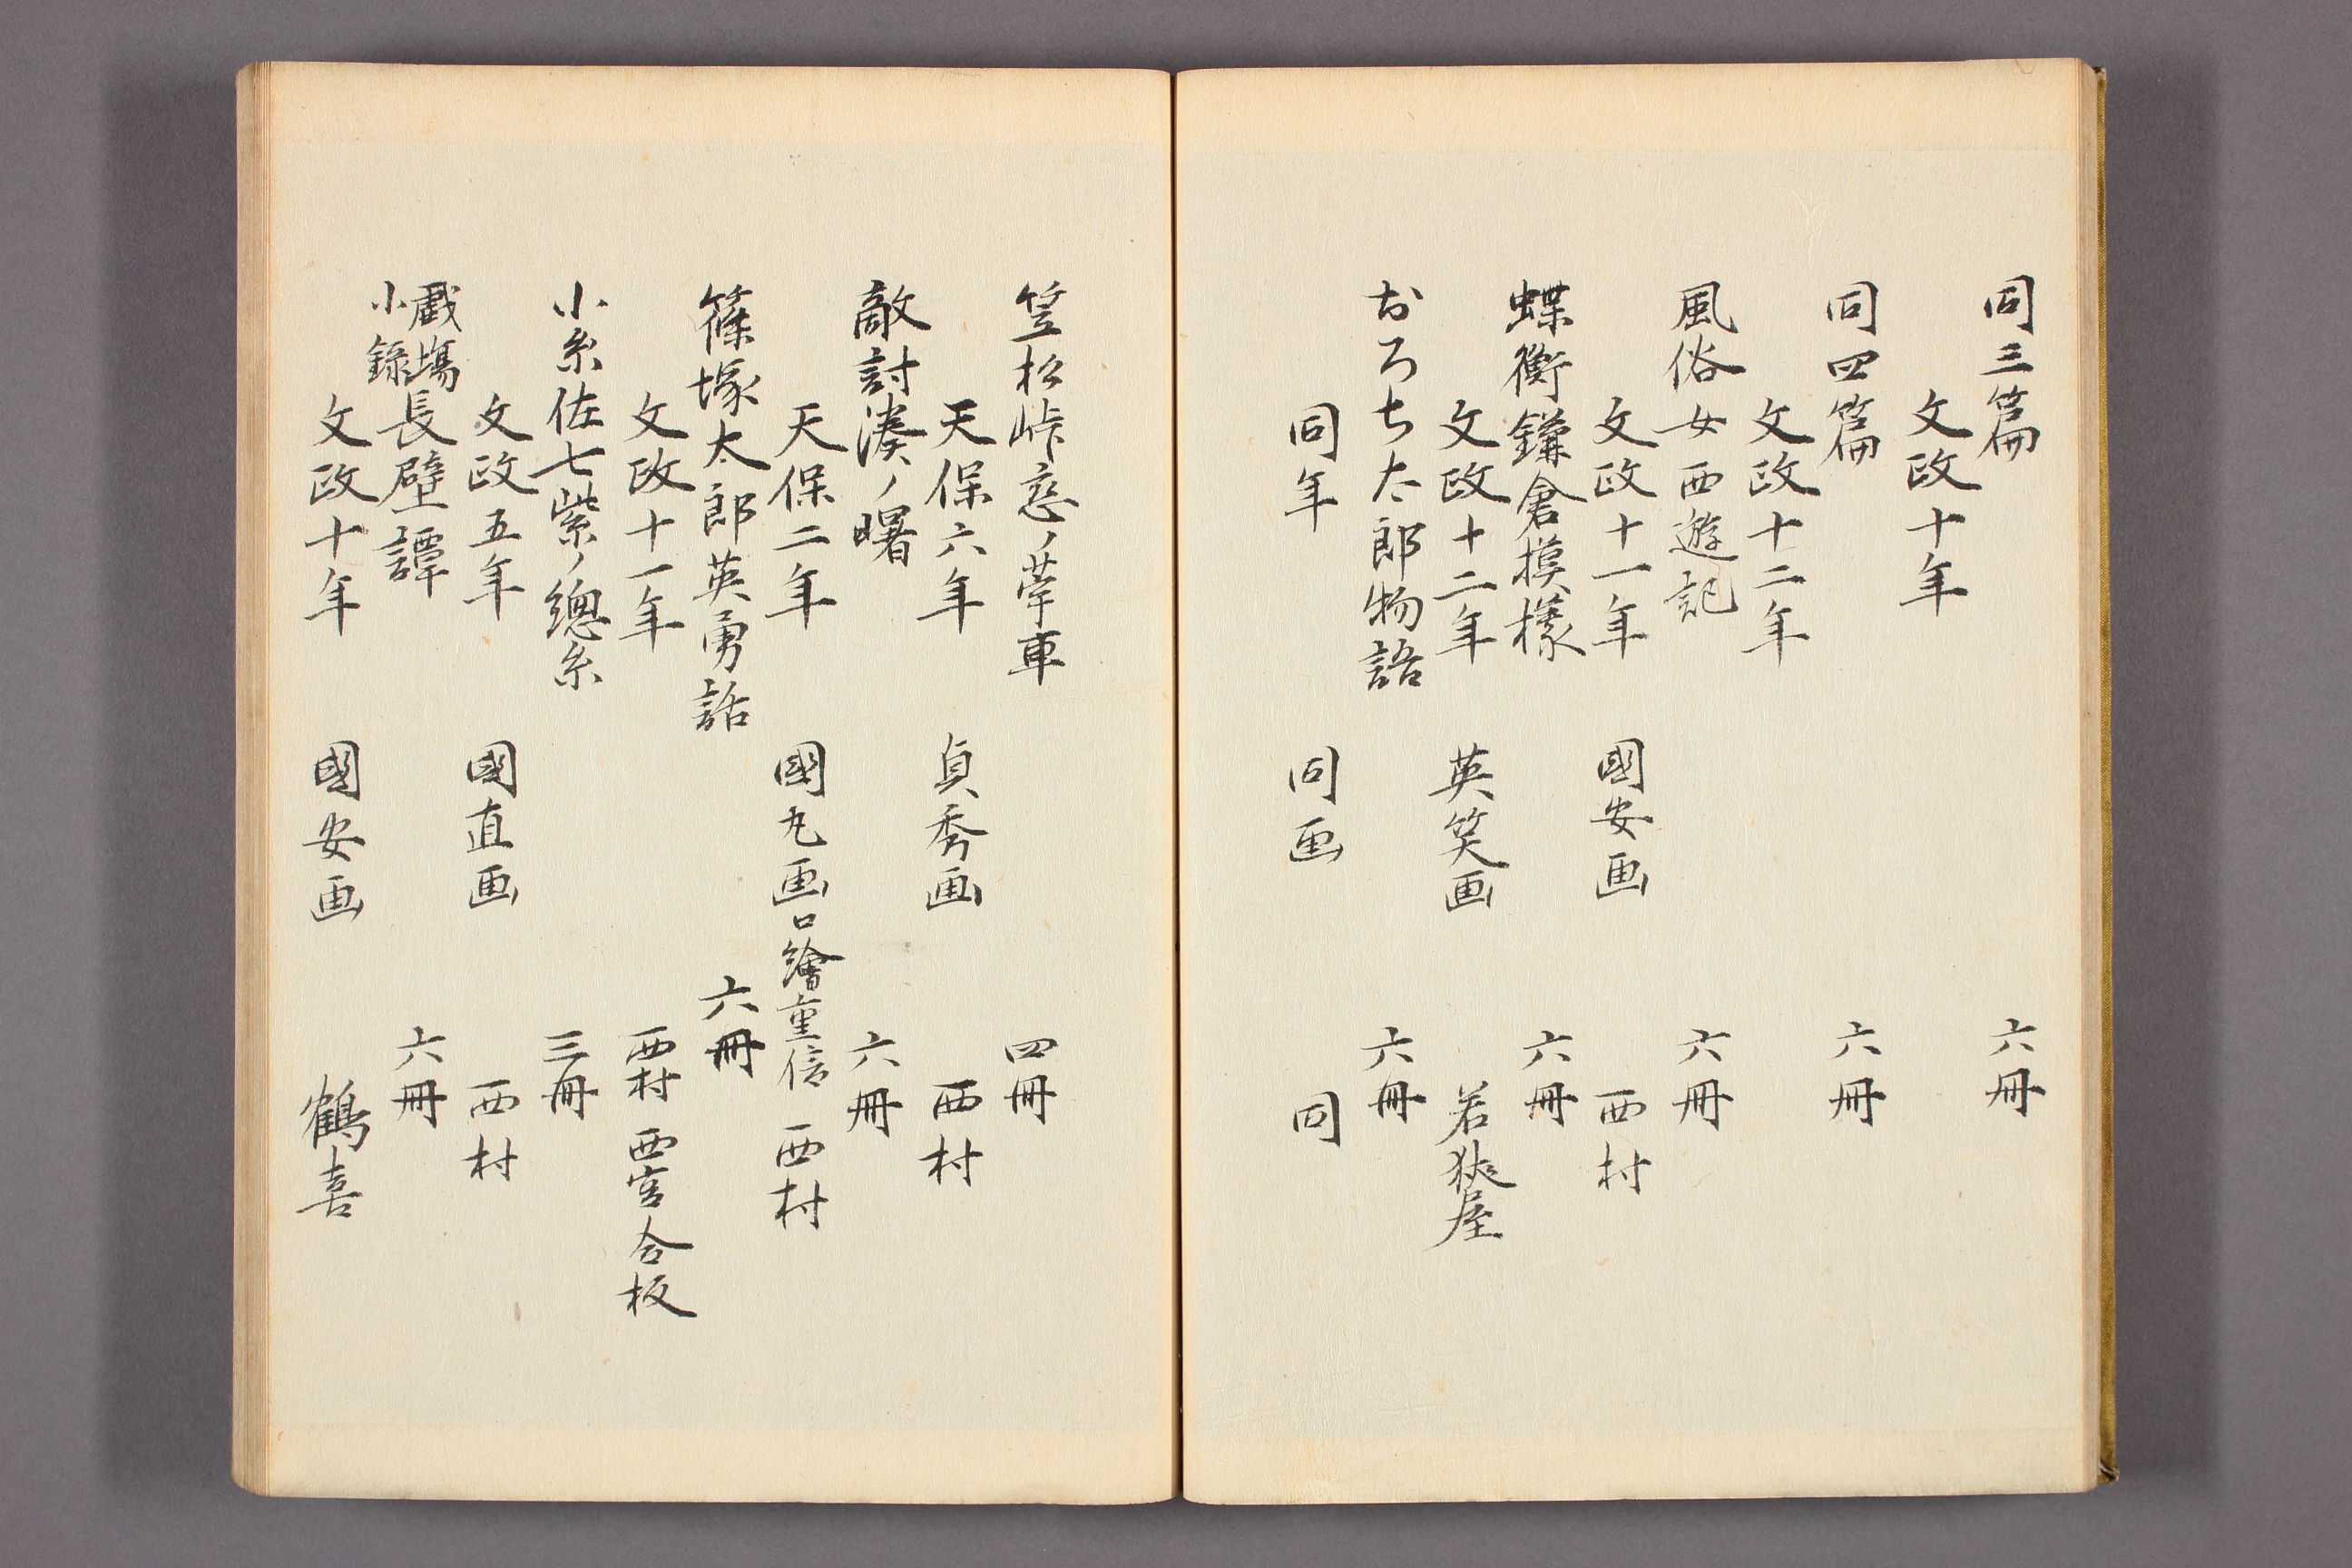 同三篇 六冊
文政十年
同四篇 六冊
文政十二年
風俗女西遊記 六冊
文政十一年 國安画 西村
蝶衛鎌倉摸樣 六冊
文政十二年 英笑画 若狹屋
おろち太郎物語 六冊
同年 同画 同
笠松峠恋ノ車 四冊
天保六年 貞秀画 西村
敵討湊ノ曙 六冊
天保二年 國丸画 口繪重信 西村
篠塚太郎英勇話 六冊
文政十一年 西村 西宮合板
小糸佐七紫ノ總糸 三冊
文政五年 國直画 西村
戯場小錄長壁譚 六冊
文政十年 國安画 鶴喜